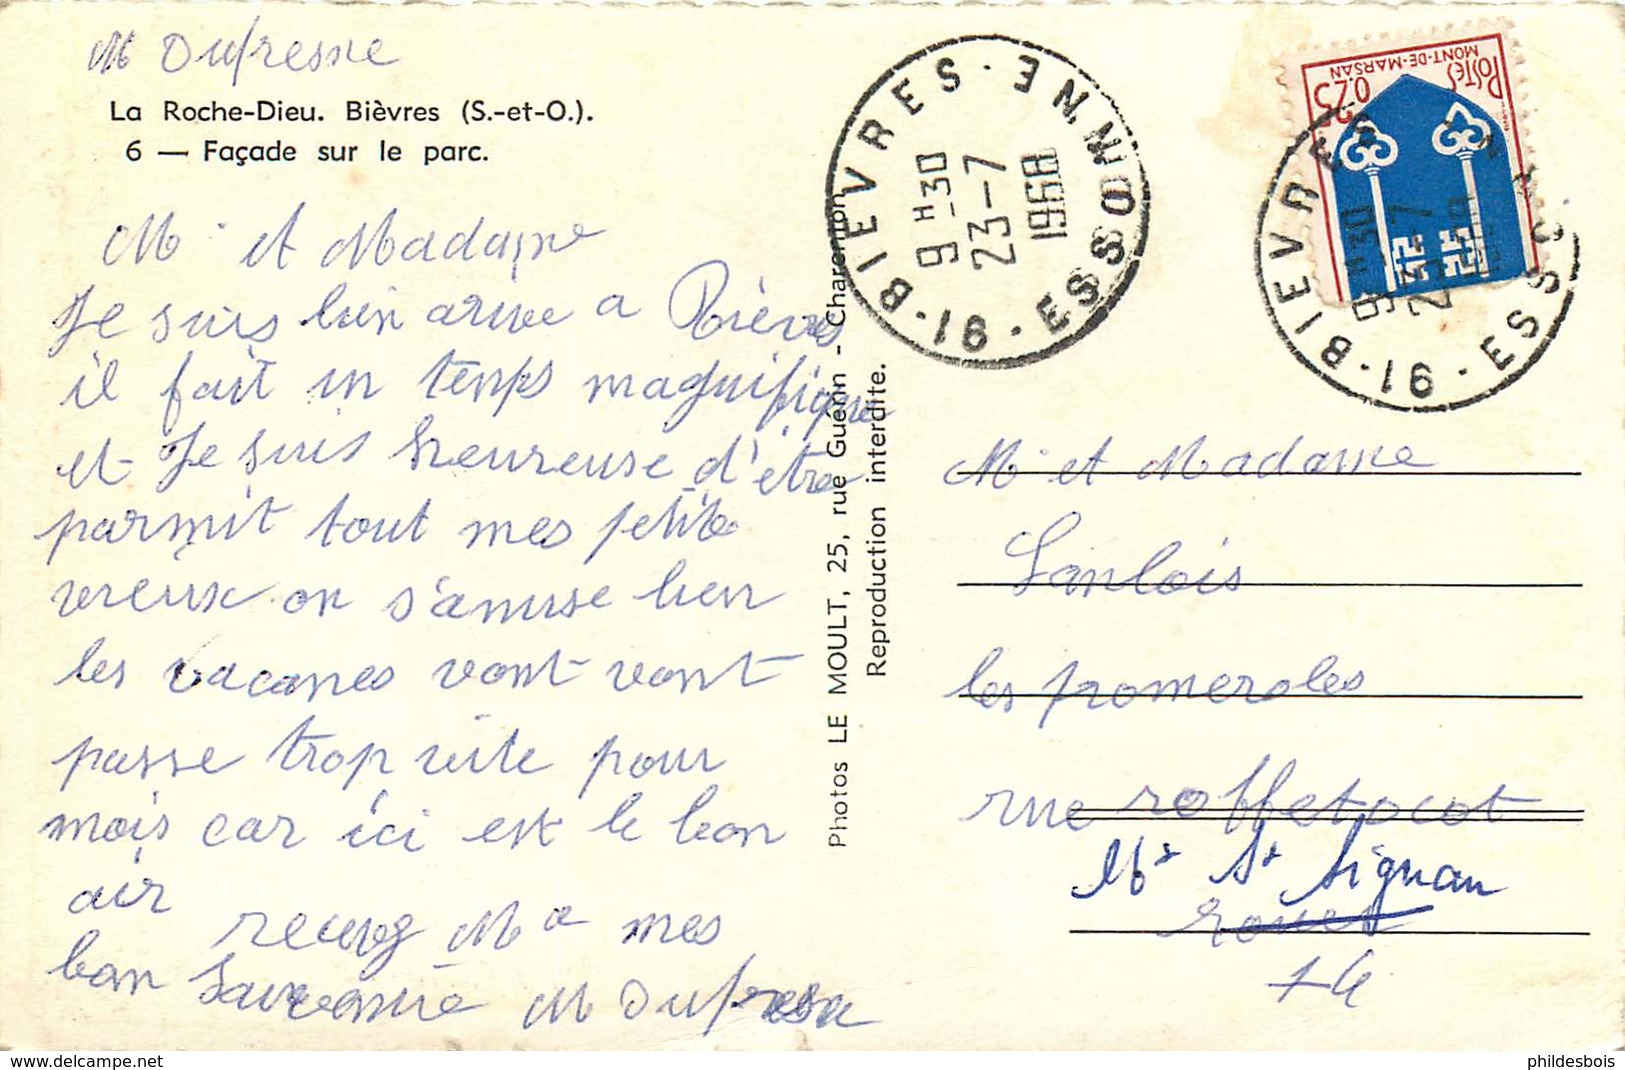 M Dufresne
La Roche-Dieu. Bièvres (S.-et-O.).
6 — Façade sur le parc.
M et Madame
Je suis bien arive a Bièvres
il fait in temps magnifique
et Je suis heureuse d'être
parmit tout mes petite
vieux on s'amuse bien
les vacanes vont vont
passe trop vite pour
mois car ici est le bon
air
M mes
bon M Dufresne
Photos LE MOULT, 25, rue Guérin - Charenton
Reproduction interdite.
91-BIEVRES - ESSONNE
9H30
23-7
1968
POSTES
MONT-DE-MARSAN
0.25
91-BIEVRES
9H30
23-7
M et Madame
Lanlois
les pomeroles
rue roffetocot
Mt St Aignan
rouen
76
delcampe.net
phildesbois